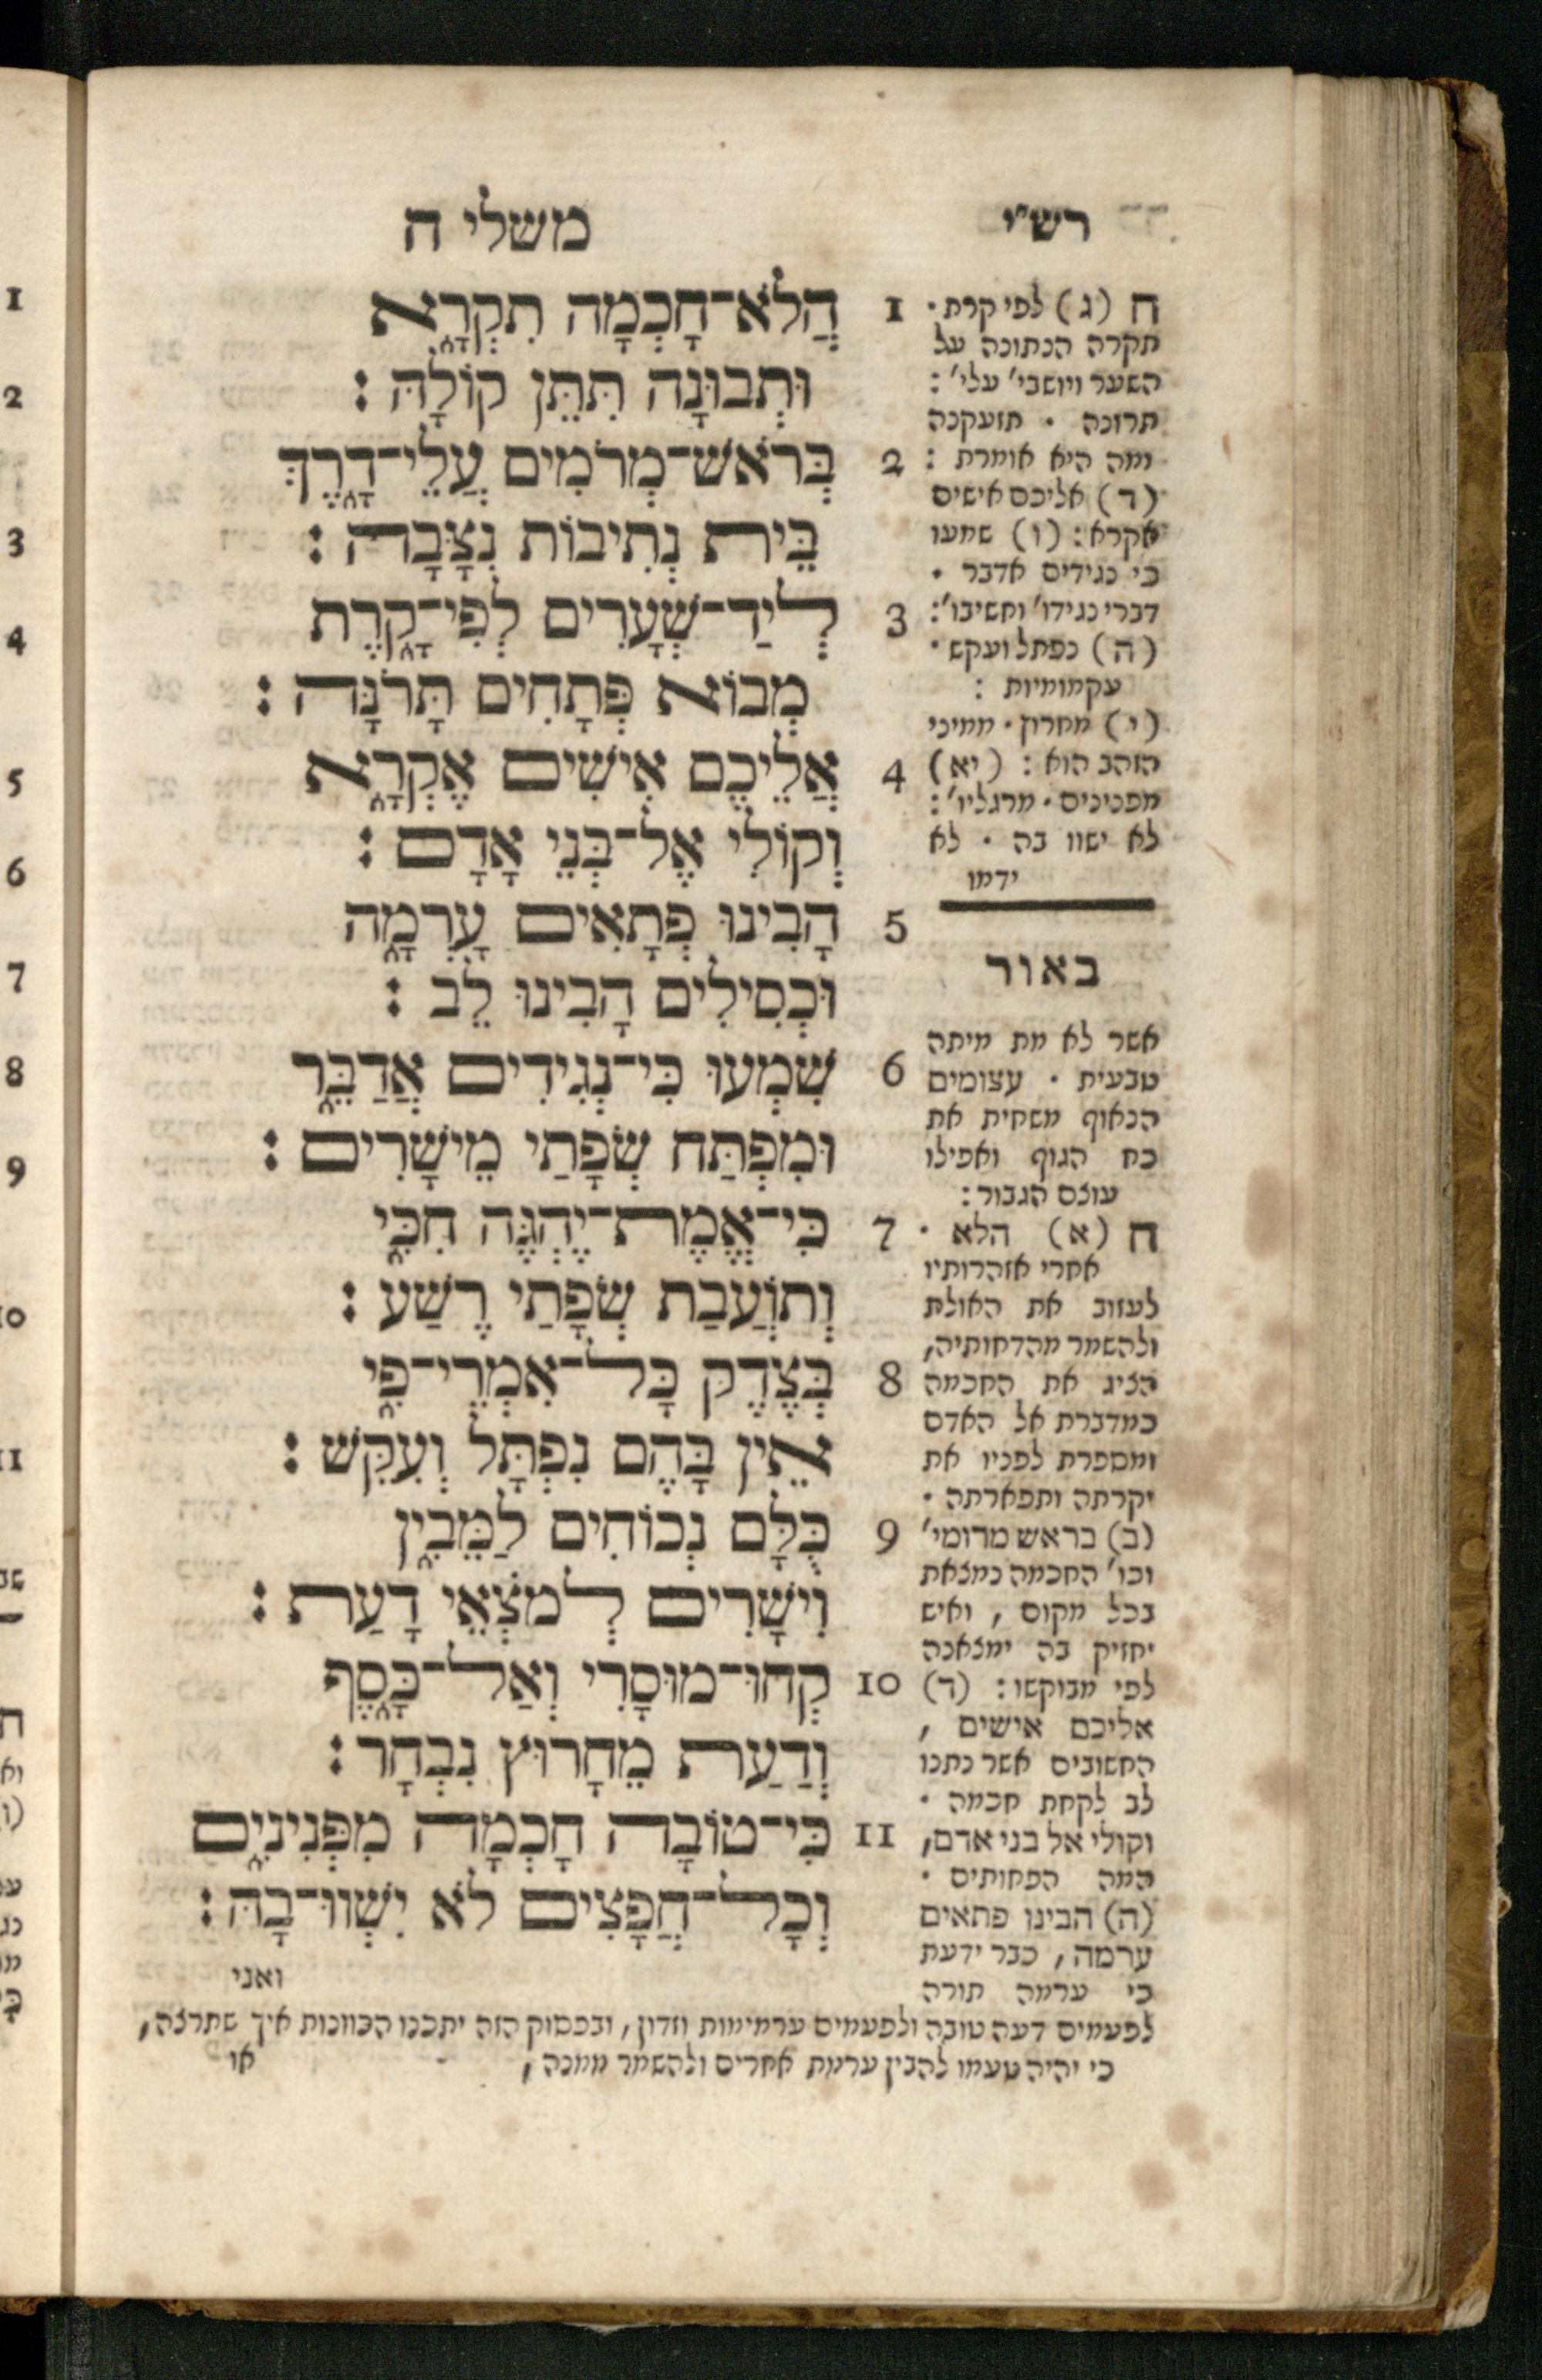 רש״י
ח (ג) לפי קרת ·
תקרה הנתונה על
השער ויושבי׳ עלי׳ :
תרונה · תזעקנה
ומה היא אומרת :
(ד) אליכם אישים
אקרא : (ו) שמעו
כי נגידים אדבר ·
דברי נגידו׳ וחשיבו׳ :
(ה) נפתל ועקש ·
עקמומיות :
(י) מחרוץ · ממיני
הזהב הוא : (יא)
מפנינים · מרגליו׳ :
לא ישוו בה · לא
ידמו
באור
אשר לא מת מיתה
טבעית · עצומים
הנאוף משחית את
כח הגוף ואפילו
עוצם הגבור :
ח (א) הלא ·
אחרי אזהרותיו
לעזוב את האולת
ולהשמר מהדחותיה,
הציג את החכמה
כמדברת אל האדם
ומספרת לפניו את
יקרתה ותפארתה ·
(ב) בראש מרומי׳
וכו׳ החכמה נמצאת
בכל מקום , ואיש
יחזיק בה ימצאנה
לפי מבוקשו : (ד)
אליכם אישים ,
החשובים אשר נתנו
לב לקחת חכמה ·
וקולי אל בני אדם,
המה הפחותים ·
(ה) הבינו פתאים
ערמה , כבר ידעת
כי ערמה תורה
לפעמים דעה טובה ולפעמים ערמימות וזדון, ובפסוק הזה יתכנו הכוונות איך שתרצה,
כי יהיה טעמו להבין ערמת אחרים ולהשמר ממנה ,
או
משלי ח
1 הֲלֹא־חָכְמָה תִקְרָ֑א
וּתְבוּנָה תִּתֵּן קוֹלָֽהּ :
2 בְּרֹאשׁ־מְרֹמִים עֲלֵי־דָ֑רֶךְ
בֵּית נְתִיבוֹת נִצָּֽבָה :
3 לְיַד־שְׁעָרִים לְפִי־קָ֑רֶת
מְבוֹא פְתָחִים תָּרֹֽנָּה :
4 אֲלֵיכֶם אִישִׁים אֶקְרָ֑א
וְקוֹלִי אֶל־בְּנֵי אָדָֽם :
5 הָבִינוּ פְתָאִים עָרְמָ֑ה
וּכְסִילִים הָבִינוּ לֵֽב :
6 שִׁמְעוּ כִּי־נְגִידִים אֲדַבֵּ֑ר
וּמִפְתַּח שְׂפָתַי מֵישָׁרִֽים :
7 כִּי־אֱמֶת־יֶהְגֶּה חִכִּ֑י
וְתוֹעֲבַת שְׂפָתַי רֶֽשַׁע :
8 בְּצֶדֶק כָּל־אִמְרֵי־פִ֑י
אֵין בָּהֶם נִפְתָּל וְעִקֵּֽשׁ :
9 כֻּלָּם נְכוֹחִים לַמֵּבִ֑ין
וִישָׁרִים לְמֹצְאֵי דָֽעַת :
10 קְחוּ־מוּסָרִי וְאַל־כָּ֑סֶף
וְדַעַת מֵחָרוּץ נִבְחָֽר :
11 כִּי־טוֹבָה חָכְמָה מִפְּנִינִ֑ים
וְכָל־חֲפָצִים לֹא יִשְׁווּ־בָֽהּ :
ואני
1
2
3
4
5
6
7
8
9
10
11